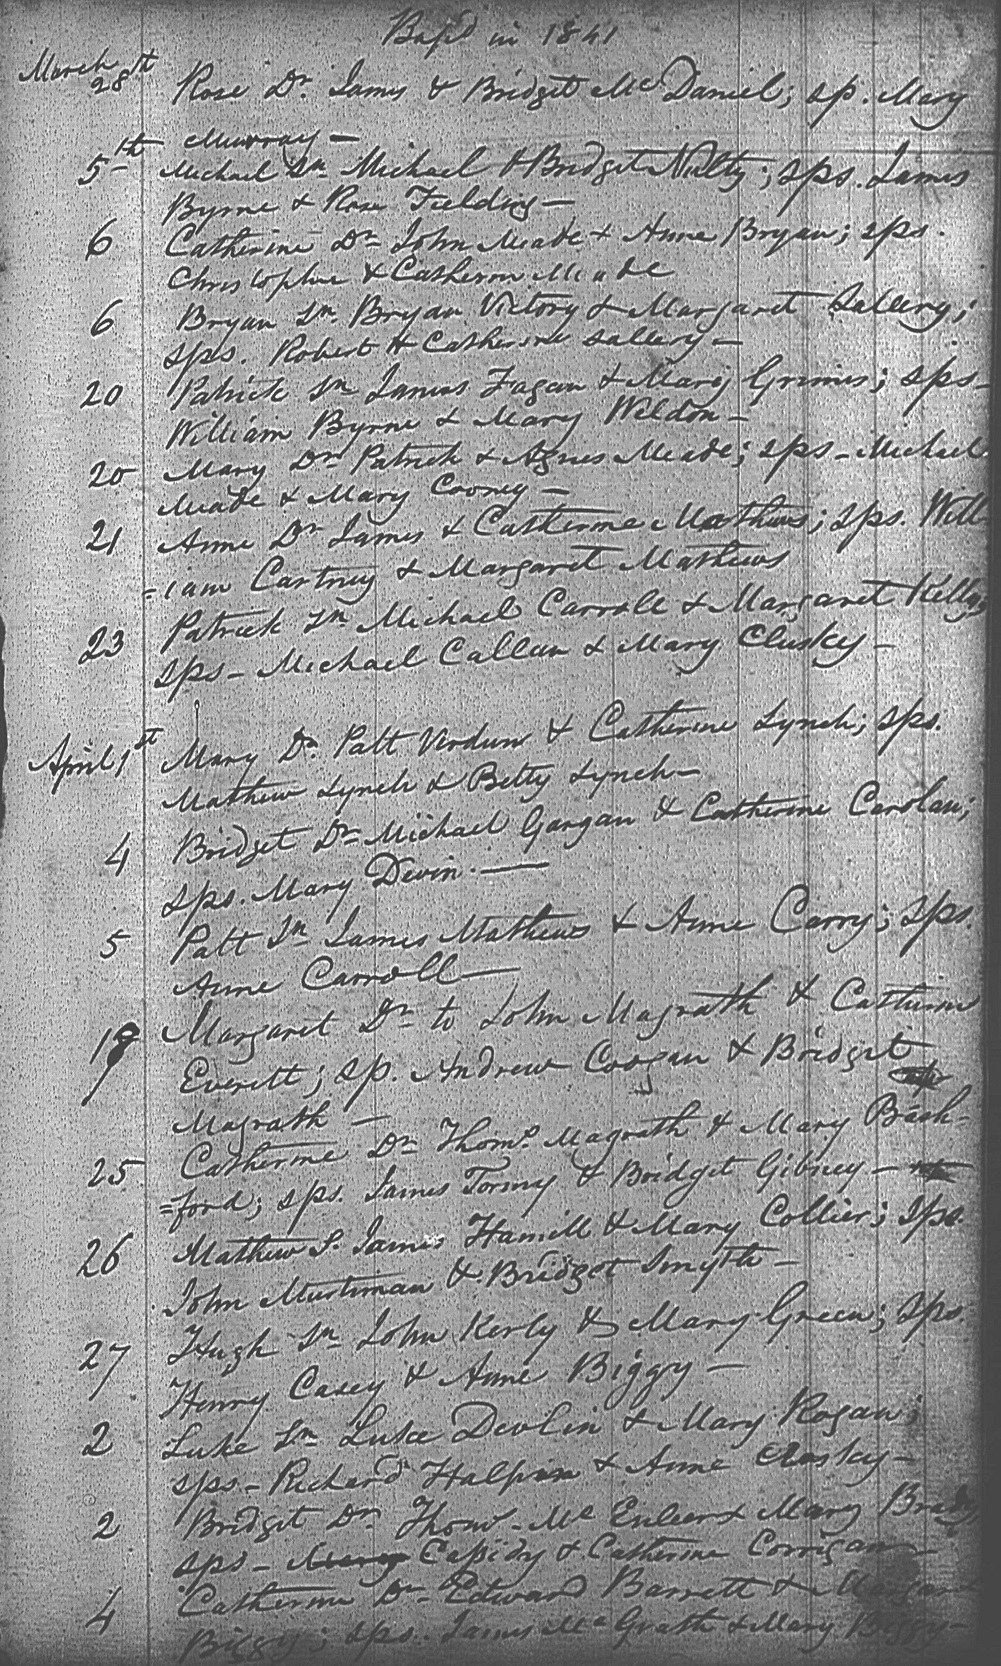 Bapd in 1841
March 28th Rose Dr. James & Bridget McDaniel; sp. Mary
Murray —
5th Michael Sn Michael & Bridget Nulty; sps. James
Byrne & Rose Fielding —
6 Catherine Dr John Meade & Anne Bryan; sps.
Christopher & Catherine Meade
6 Bryan Sn. Bryan Victory & Margaret Sallery;
sps. Robert & Catherine Sallery —
20 Patrick Sn James Fagan & Mary Grimes; sps —
William Byrne & Mary Weldon —
20 Mary Dr Patrick & Agnes Meade; sps — Michael
Meade & Mary Cooney —
21 Anne Dr James & Catherine Mathews; sps. Will
=iam Cartney & Margaret Mathews
23 Patrick Sn Michael Carroll & Margaret Kelly;
sps — Michael Callan & Mary Clusky —
April 1st Mary Dr. Patt & Catherine Lynch; sps.
Mathew Lynch & Betty Lynch —
4 Bridget Dr Michael Gargan & Catherine Carolan;
sps. Mary Devin. —
5 Patt Sn James Mathews & Anne Carry; sps.
Anne Carroll —
Margaret Dr to John Magrath & Catherine
Everett; sp. Andrew Coogan & Bridget
Magrath —
25 Catherine Dr Thoms. Magrath & Mary Bash-
=ford; sps. James Tormy & Bridget Gibney —
26 Mathew S. James Hamill & Mary Collier; sps.
John & Bridget Smyth —
27 Hugh Sn John Kerly & Mary Green; sps.
Henry Casey & Anne Biggy —
2 Luke Sn Luke Devlin & Mary Rogan;
sps — Richard Halpin & Anne Clusky —
2 Bridget Dr Thoms. Mc & Mary Brady
sps — Cassidy & Catherine Corrigan —
4 Catherine Dr Edward Barrett & Margaret
Biggy; sps. James McGrath & Mary Biggy —